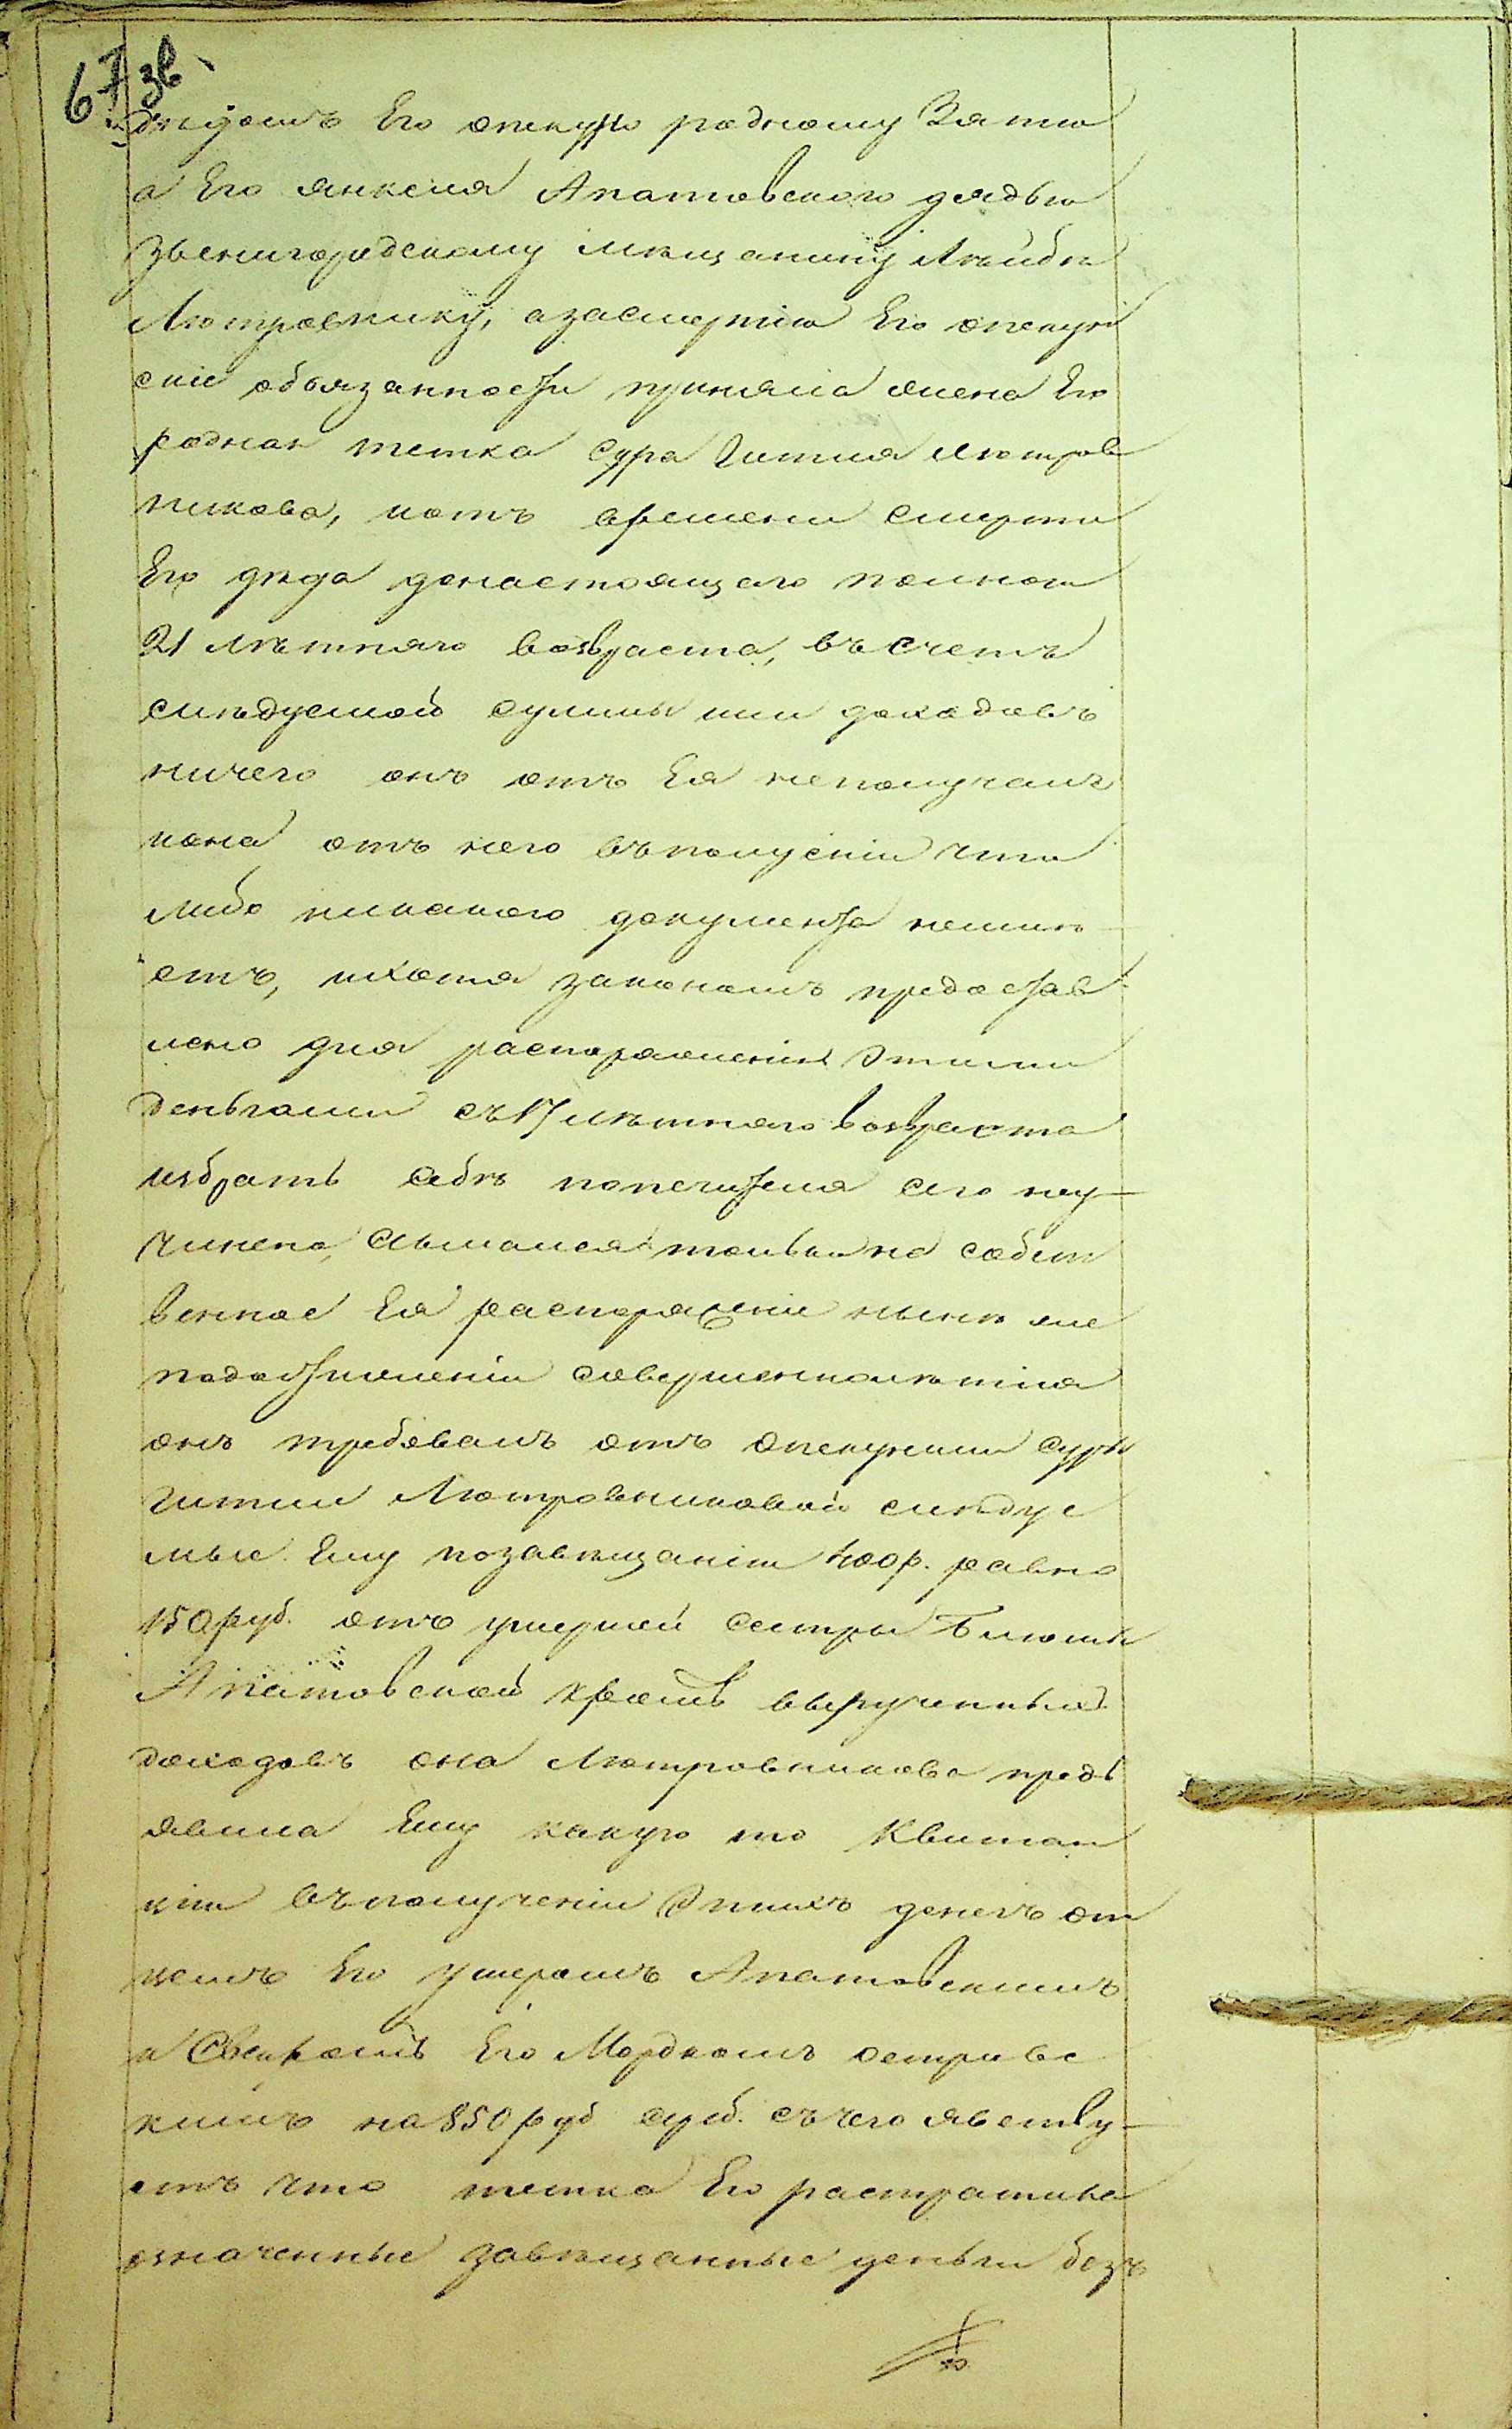 67 зв.
дѣдомъ Его опекуну родному Зятю
а Его Янкеля Апатовского дядьки
Звенигородскому мѣщанину Лейбѣ
Лютровнику, азасмертію Его опекун
скіе обьязанности приняла жена Его
родная тетка Сура Гитля Лютров
никова, иотъ времени смерти
Его дѣда донастоящаго полного
21 лѣтняго возраста, въ счетъ
слѣдуемой суммы или доходовъ
ничего онъ отъ Ея неполучалъ
иона отъ него въполученіи чего
либо никакого документа неимѣ-
етъ, ихотя закономъ предостав-
лено для распоряженія Этими
деньгами съ 17 лѣтняго возраста
избрать себѣ попечителя сего неу-
чинено, а только на собст
венное Ея распоряженіе нынѣ же
подостиженіи совершеннолѣтія
онъ требовалъ отъ опекунши Суры
Гитли Лютровниковой слѣдуе
мые Ему позавѣщанію 400 р. равно
150 руб. отъ умершей сестры Блюмы
Апатовской кромѣ вырученныхъ
доходовъ она Лютровникова предъ
явила Ему какую то Квитан
цію въполученіи Этихъ денегъ от
цемъ Его умершимъ Апатовскимъ
и Свекромъ Его Мордкомъ Островс
кимъ на 850 руб сереб. съ чего явству-
етъ что тетка Его растратила
означенные завѣщанные деньги безъ